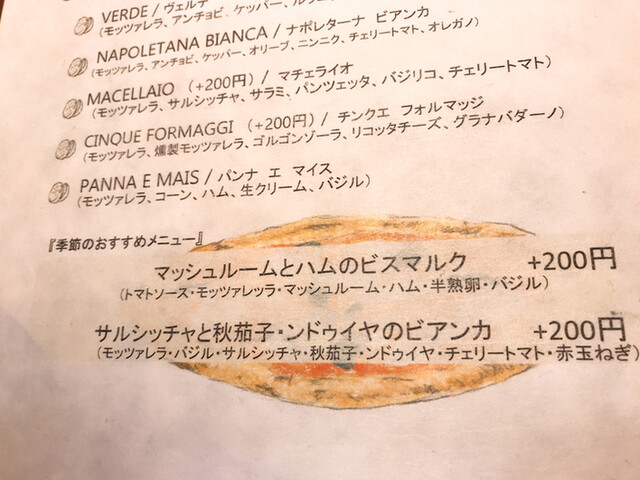 VERDE / ヴェルデ
(モッツァレラ、アンチョビ、ケッパー、
NAPOLETANA BIANCA / ナポレターナ ビアンカ
(モッツァレラ、アンチョビ、ケッパー、オリーブ、ニンニク、チェリートマト、オレガノ)
MACELLAIO (+200円) / マチェライオ
(モッツァレラ、サルシッチャ、サラミ、パンツェッタ、バジリコ、チェリートマト)
CINQUE FORMAGGI (+200円) / チンクエ フォルマッジ
(モッツァレラ、燻製モッツァレラ、ゴルゴンゾーラ、リコッタチーズ、グラナパダーノ)
PANNA E MAIS / パンナ エ マイス
(モッツァレラ、コーン、ハム、生クリーム、バジル)
『季節のおすすめメニュー』
マッシュルームとハムのビスマルク +200円
(トマトソース・モッツァレッラ・マッシュルーム・ハム・半熟卵・バジル)
サルシッチャと秋茄子・ンドゥイヤのビアンカ +200円
(モッツァレラ・バジル・サルシッチャ・秋茄子・ンドゥイヤ・チェリートマト・赤玉ねぎ)